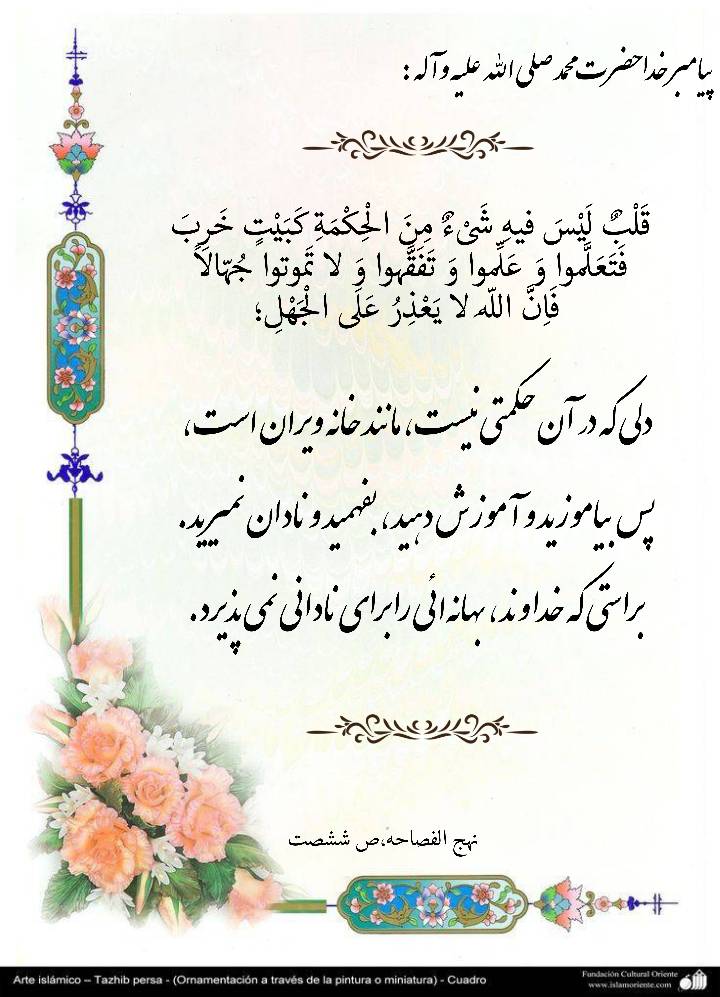 پیامبر خدا حضرت محمد صلی الله علیه و آله :
قَلْبٌ لَيْسَ فيهِ شَىْءٌ مِنَ الْحِكْمَةِ كَبَيْتٍ خَرِبَ
فَتَعَلَّموا وَ عَلِّموا وَ تَفَقَّهوا وَ لا تَموتوا جُهّالاً
فَاِنَّ اللّه لا يَعْذِرُ عَلَى الْجَهْلِ؛
دلی که در آن حکمتی نیست، مانند خانه ویران است،
پس بیاموزید و آموزش دهید، بفهمید و نادان نمیرید.
براستی که خداوند، بهانه‌ائی را برای نادانی نمی پذیرد.
نهج الفصاحه،ص ششصت
Arte islámico – Tazhib persa - (Ornamentación a través de la pintura o miniatura) - Cuadro
Fundación Cultural Oriente
www.islamoriente.com